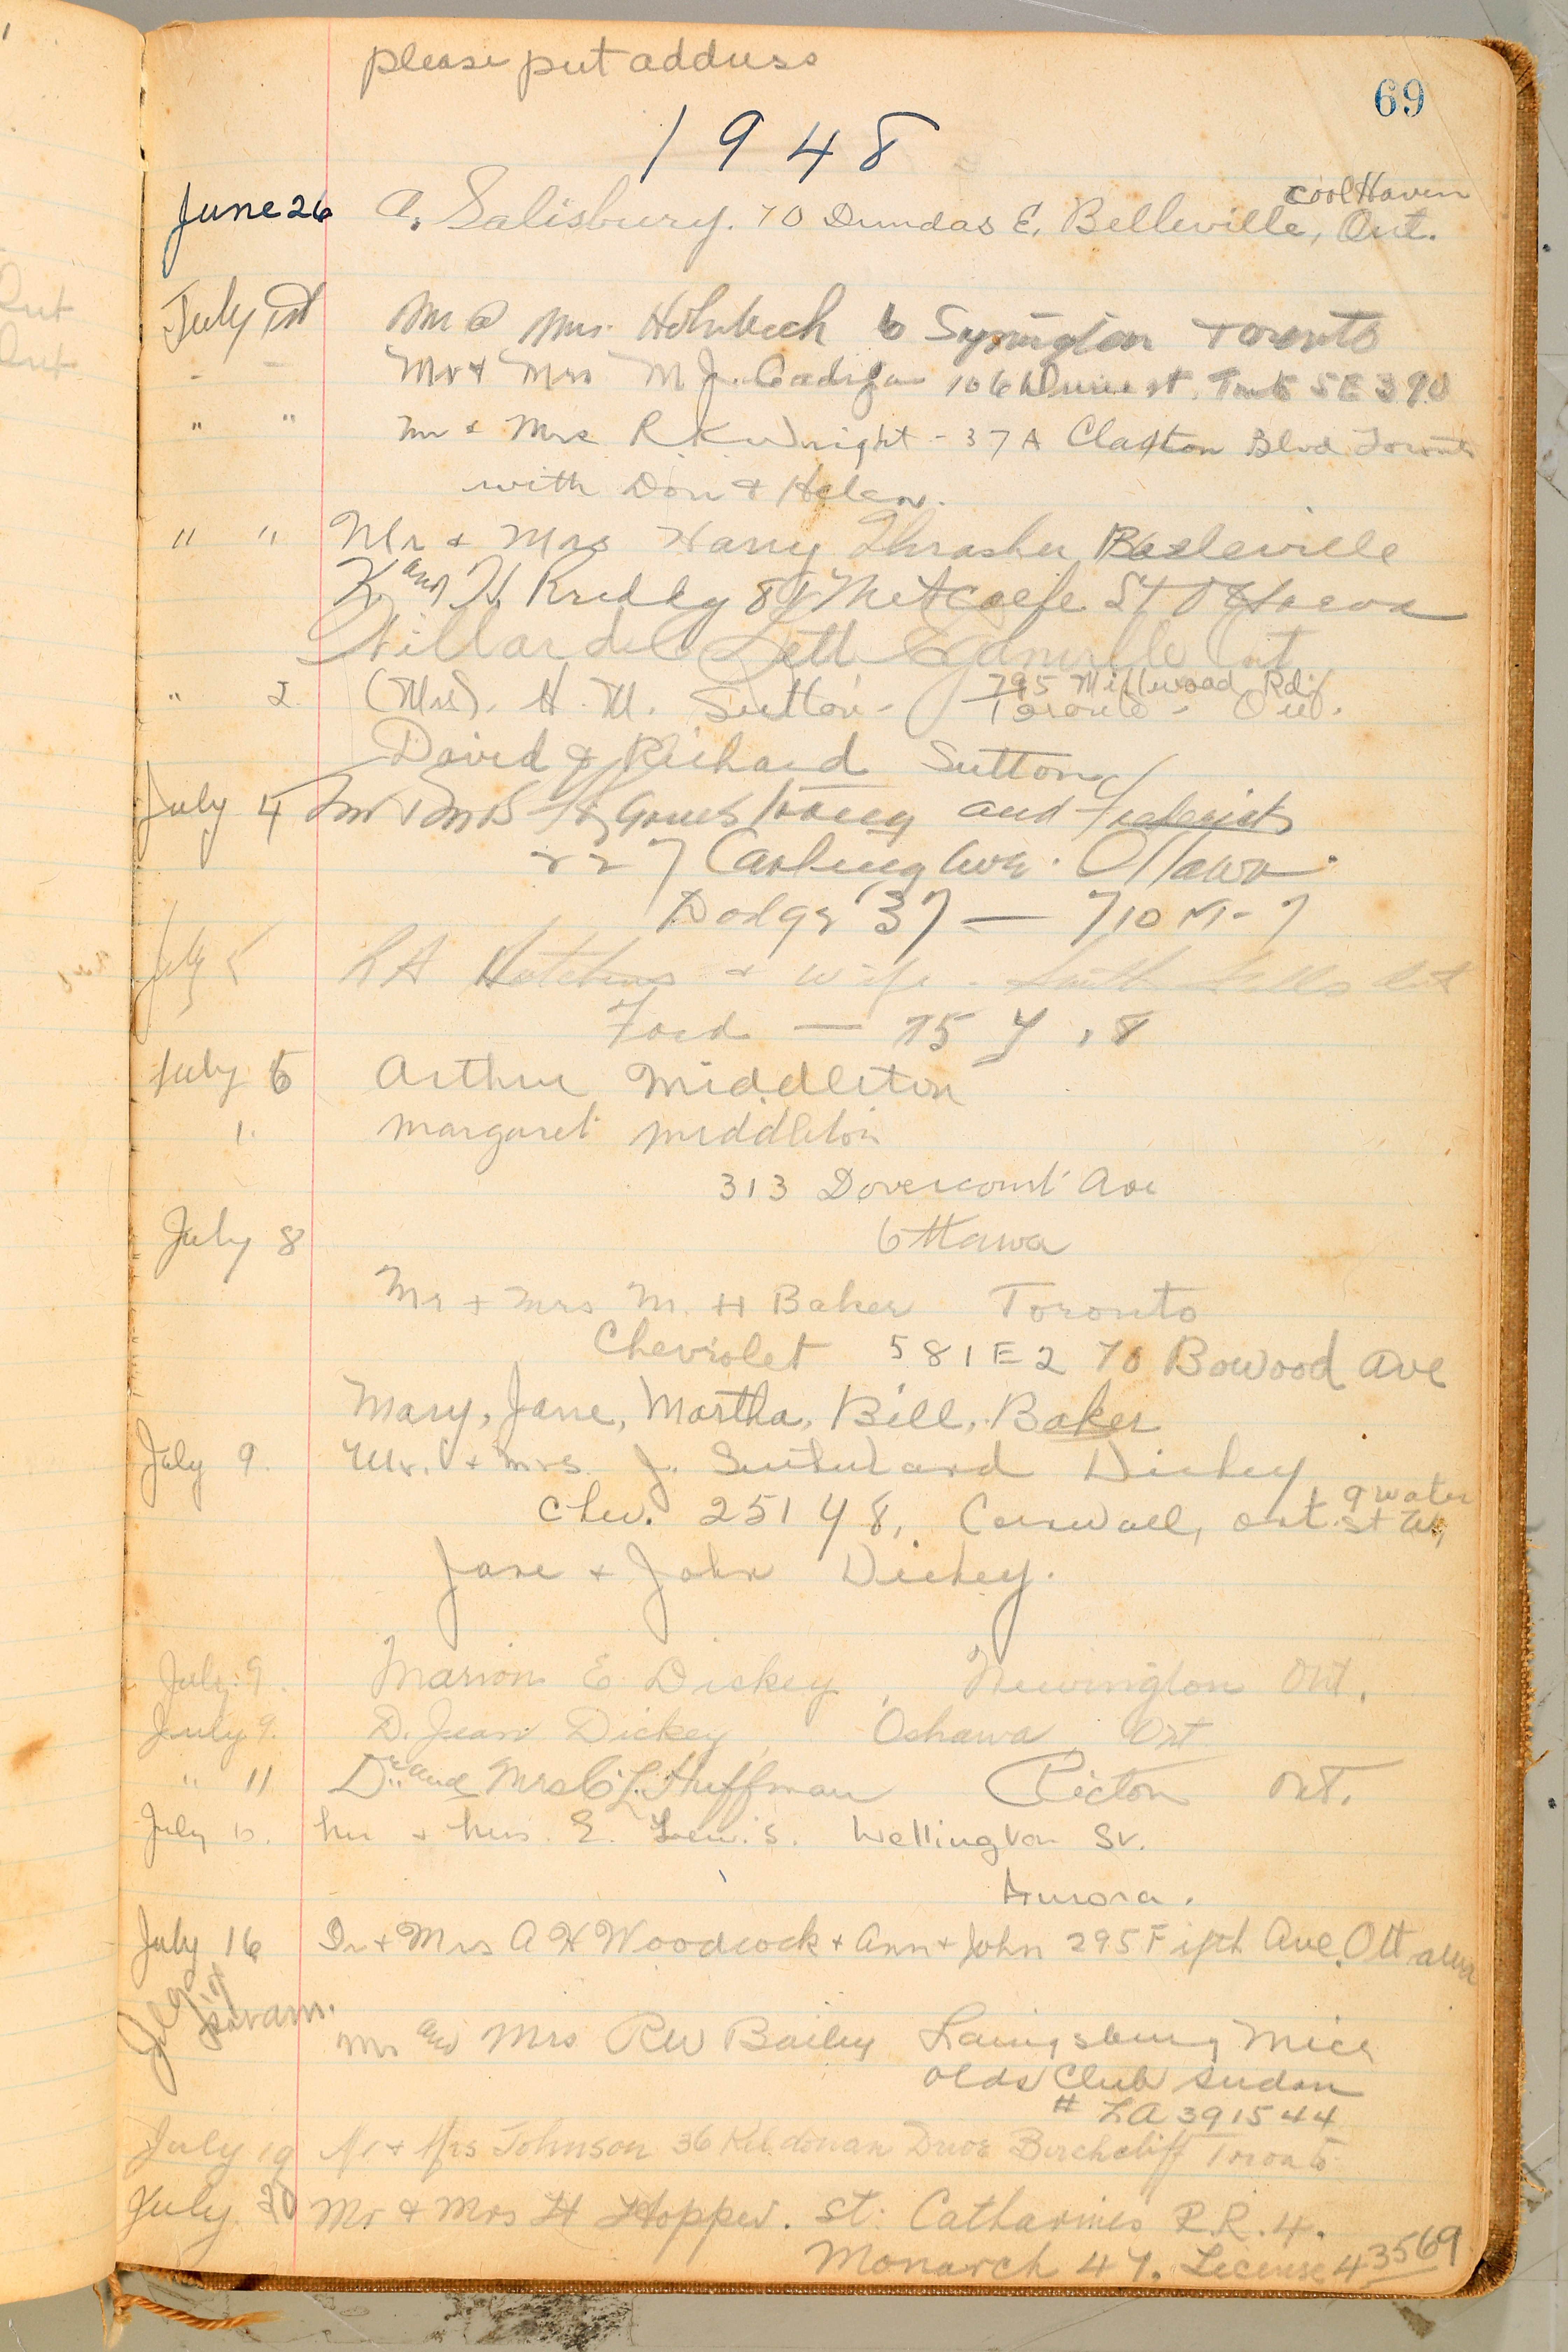 please put address
69
1948
June 26 A. Salisbury. 70 Dundas E. Belleville, Ont.
Cool Haven
July 1st Mr & Mrs. 6 Symington Toronto
Mr & Mrs M J. Cadigan 106 st. 5E390
" " Mr & Mrs R K Wright - 37A Claxton Blvd Toronto
with Don & Helen.
" " Mr & Mrs Harry Thrasher Belleville
K. and H. 81 Metcalfe St Ottawa
Willard Lett Eganville Ont
" 2 (Mrs). H. M. Sutton - 795 Millwood Rd.
Toronto - Ont.
David & Richard Sutton
July 4 Mr & Mrs Armstrong and
227 Carling Ave. Ottawa.
Dodge 37 — 710 M-7
July 5 & wife.
Ford — 75 Y, 8
July 6 Arthur Middleton
Margaret Middleton
313 Dovercourt Ave
July 8 Ottawa
Mr + Mrs M. H Baker Toronto
Chevrolet 581E2 70 Bowood Ave
Mary, Jane, Martha, Bill, Baker
July 9. Mr. & Mrs. J. Sutherland Dickey
Chev. 251Y8, Cornwall, Ont. 9 Water St W.
Jane & John Dickey.
July 9. Marion E Dickey, Newington Ont.
July 9. D. Jean Dickey, Oshawa, Ont
" 11 Dr. and Mrs C L Huffman Picton Ont.
July 10. Mr & Mrs. E. Lewis. Wellington St.
Aurora.
July 16 Dr + Mrs A H Woodcock + Ann + John 295 Fifth Ave. Ottawa
Mr and Mrs RW Bailey Laingsburg Mich
Olds Club Sudan
# LA 391544
July 19 Mr & Mrs Johnson 36 Kildonan Drive Birchcliff Toronto
July 20 Mr & Mrs H Hopper. St. Catharines R.R. 4.
Monarch 47. License 43569